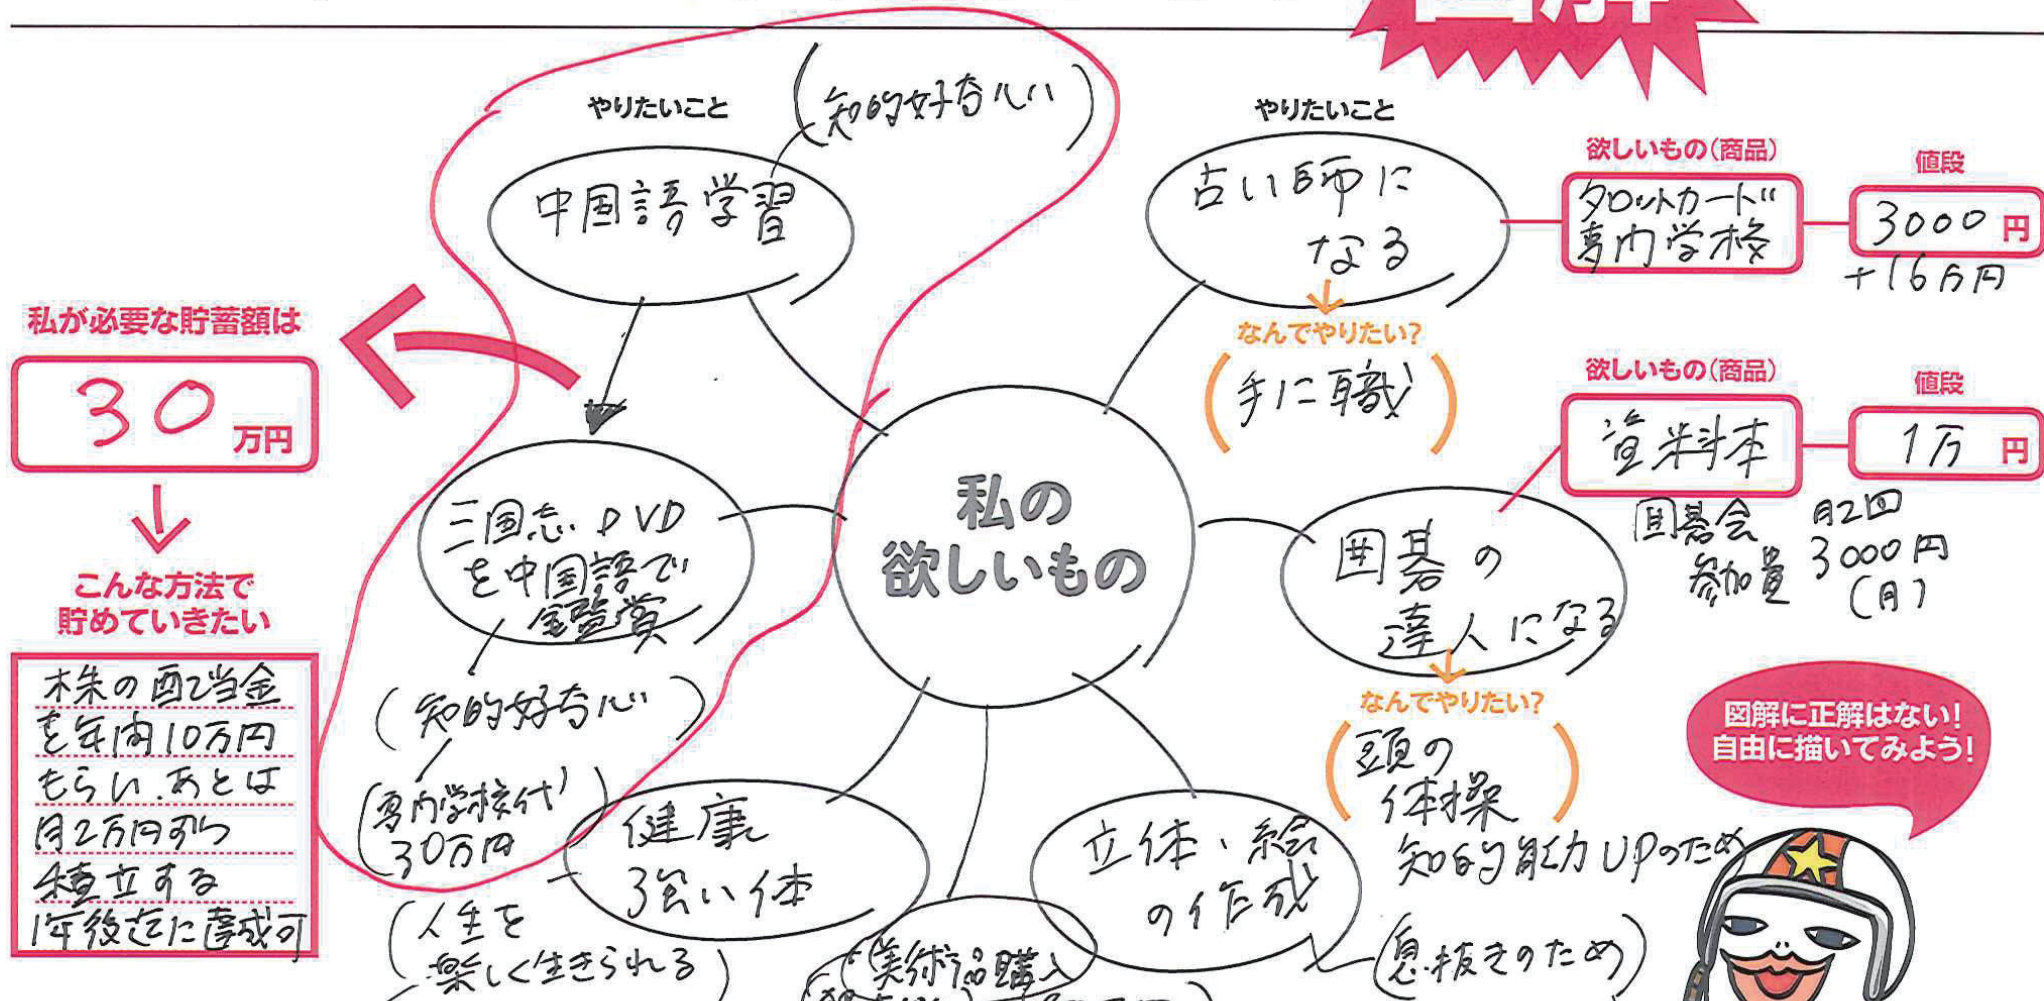 図解
やりたいこと
(知的好奇心)
中国語学習
やりたいこと
占い師に
なる
欲しいもの(商品)
タロットカード
専門学校
値段
3000円
+16万円
なんでやりたい?
(手に職)
私が必要な貯蓄額は
30万円
こんな方法で
貯めていきたい
株の配当金
を年内10万円
もらい、あとは
月2万円ずつ
積立する
1年後迄に達成可
三国志DVD
を中国語で
鑑賞
(知的好奇心)
(専門学校代)
30万円
私の
欲しいもの
欲しいもの(商品)
資料本
値段
1万円
囲碁会 月2回
参加費 3000円
(月)
囲碁の
達人になる
なんでやりたい?
(頭の
体操)
知的能力UPのため
図解に正解はない!
自由に描いてみよう!
健康
強い体
(人生を
楽しく生きられる)
美術品購入
立体・絵
の作成
(息抜きのため)